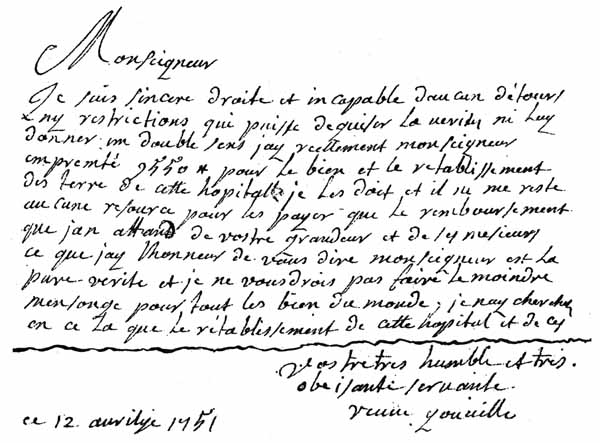 Monseigneur
Je suis sincere droite et incapable daucun détours
ny restrictions qui puisse deguiser la verité ni luy
donner un double sens jay reellement monseigneur
emprunté 9550 # pour le bien et le retablissement
des terre de cette hopital je les doit et il ne me reste
aucune resource pour les payer que le remboursement
que jan attand de vostre grandeur et de ses mesieurs
ce que jay lhonneur de vous dire monseigneur est la
pure verite et je ne voudrois pas faire le moindre
mensonge pour tout les bien du monde, je nay cherché
en ce la que le retablissement de cette hopital et de ces
vostre tres humble et tres.
obeisante servante.
veuve youville
ce 12 1751